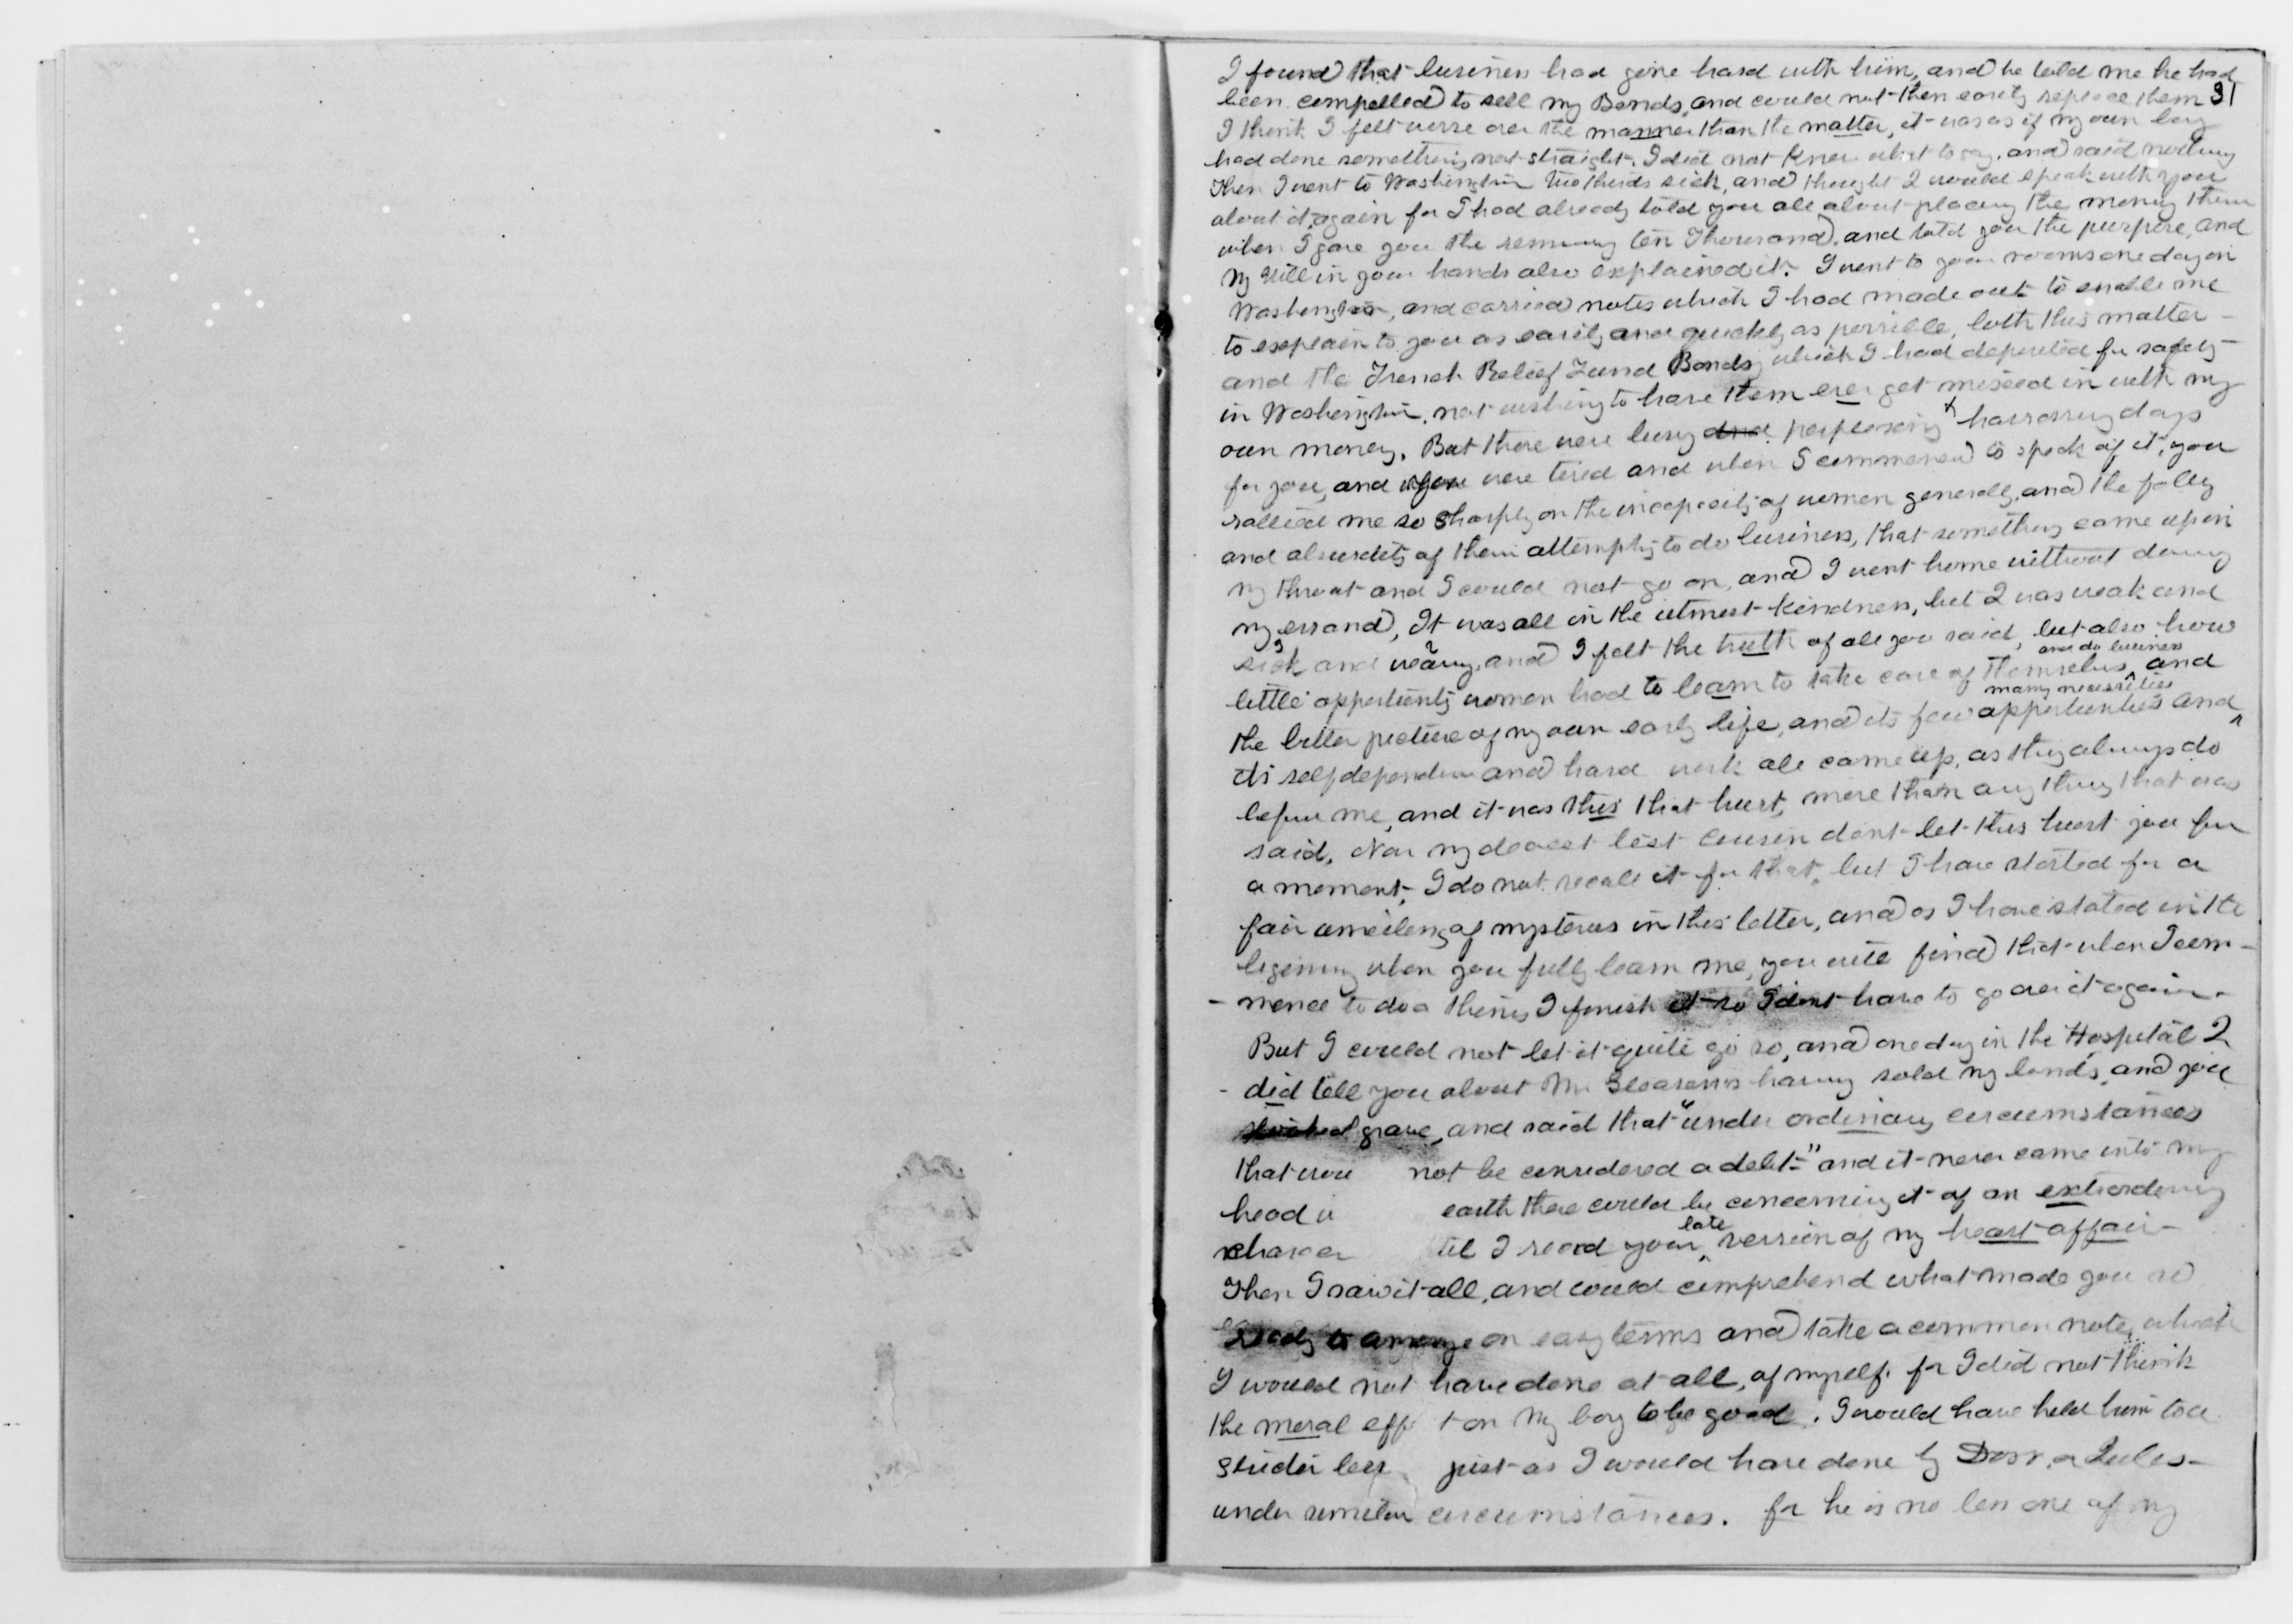 I found that business had gone hard with him, and he told me he had
been compelled to sell my Bonds, and could not then easily replace them 31
I think I felt worse over the manner than the matter, it was as if my own boy
had done something not straight. I did not know what to say, and said nothing
Then I went to Washington two thirds sick, and thought I would speak with you
about it again for I had already told you all about placing the money there
when I gave you the remaing ten Thousand, and told you the purpose, and
my Will in your hands also explained it. I went to your rooms one day in
Washington, and carried notes which I had made out to enable me
to explain to you as easily and quickly as possible, both this matter -
and the French Relief Fund Bonds, which I had deposited for safety -
in Washington, not wishing to have them ever get mixed in with my
own money. But there were busy and perplexing & harrassing days
for you, and you were tired and when I commenced to speak of it, you
rallied me so sharply on the incapacity of women generally, and the folly
and absurdity of them attempting to do business, that something came up in
my throat and I could not go on, and I went home without doing
my errand, It was all in the utmost kindness, but I was weak and
sick and weary, and I felt the truth of all you said, but also how
little opportunity women had to learn to take care of themselves and do business, and
the bitter picture of my own early life, and its few opportunities and many necessities
its self dependence and hard work all came up, as they always do
before me, and it was this that hurt, more than any thing that was
said, Now my dearest best cousin dont let this hurt you for
a moment, I do not recall it for that, but I have started for a
fair unveiling of mysteries in this letter, and as I have stated in the
begining when you fully learn me, you will find that when I com -
- mence to do a thing I finish it so I dont have to go over it again -
But I could not let it quite go so, and one day in the Hospital I
- did tell you about Mr Gleasons having sold my bonds, and you
looked grave, and said that "under ordinary circumstances
that wou not be considered a debt-" and it never came into my
head earth there could be concerning it of an extraordinary
charac til I read your late version of my heart affair -
Then I saw it all, and could comprehend what made you so
ready to arrange on easy terms and take a common note, which
I would not have done at all, of myself. for I did not think
the moral eff t on my boy to be good. I would have held him to a
just as I would have done by
under similar circumstances. for he is no less one of my